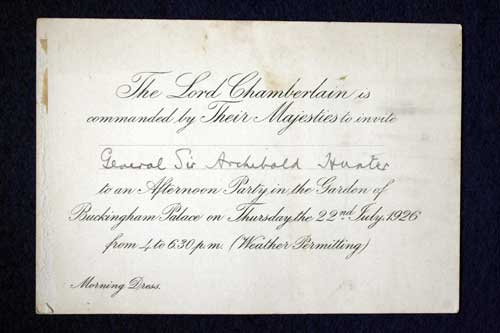 The Lord Chamberlain is
commanded by Their Majesties to invite
General Sir Archibald Hunter
to an Afternoon Party in the Garden of
Buckingham Palace on Thursday the 22nd July, 1926
from 4 to 6.30 p.m. (Weather Permitting)
Morning Dress.